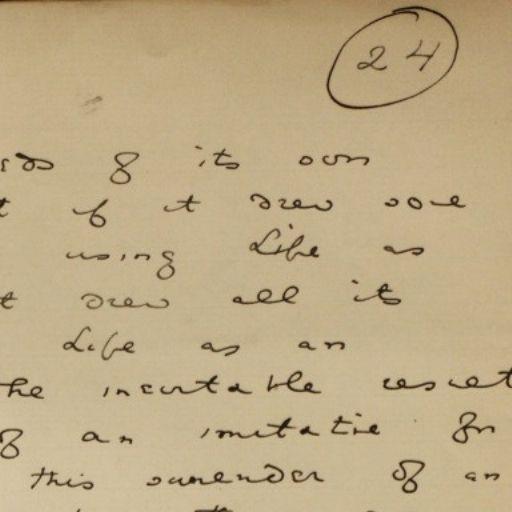 24
of its own
if it drew some
using Life as
drew all its
Life as an
the inevitable result
of an imitative
this surrender of an